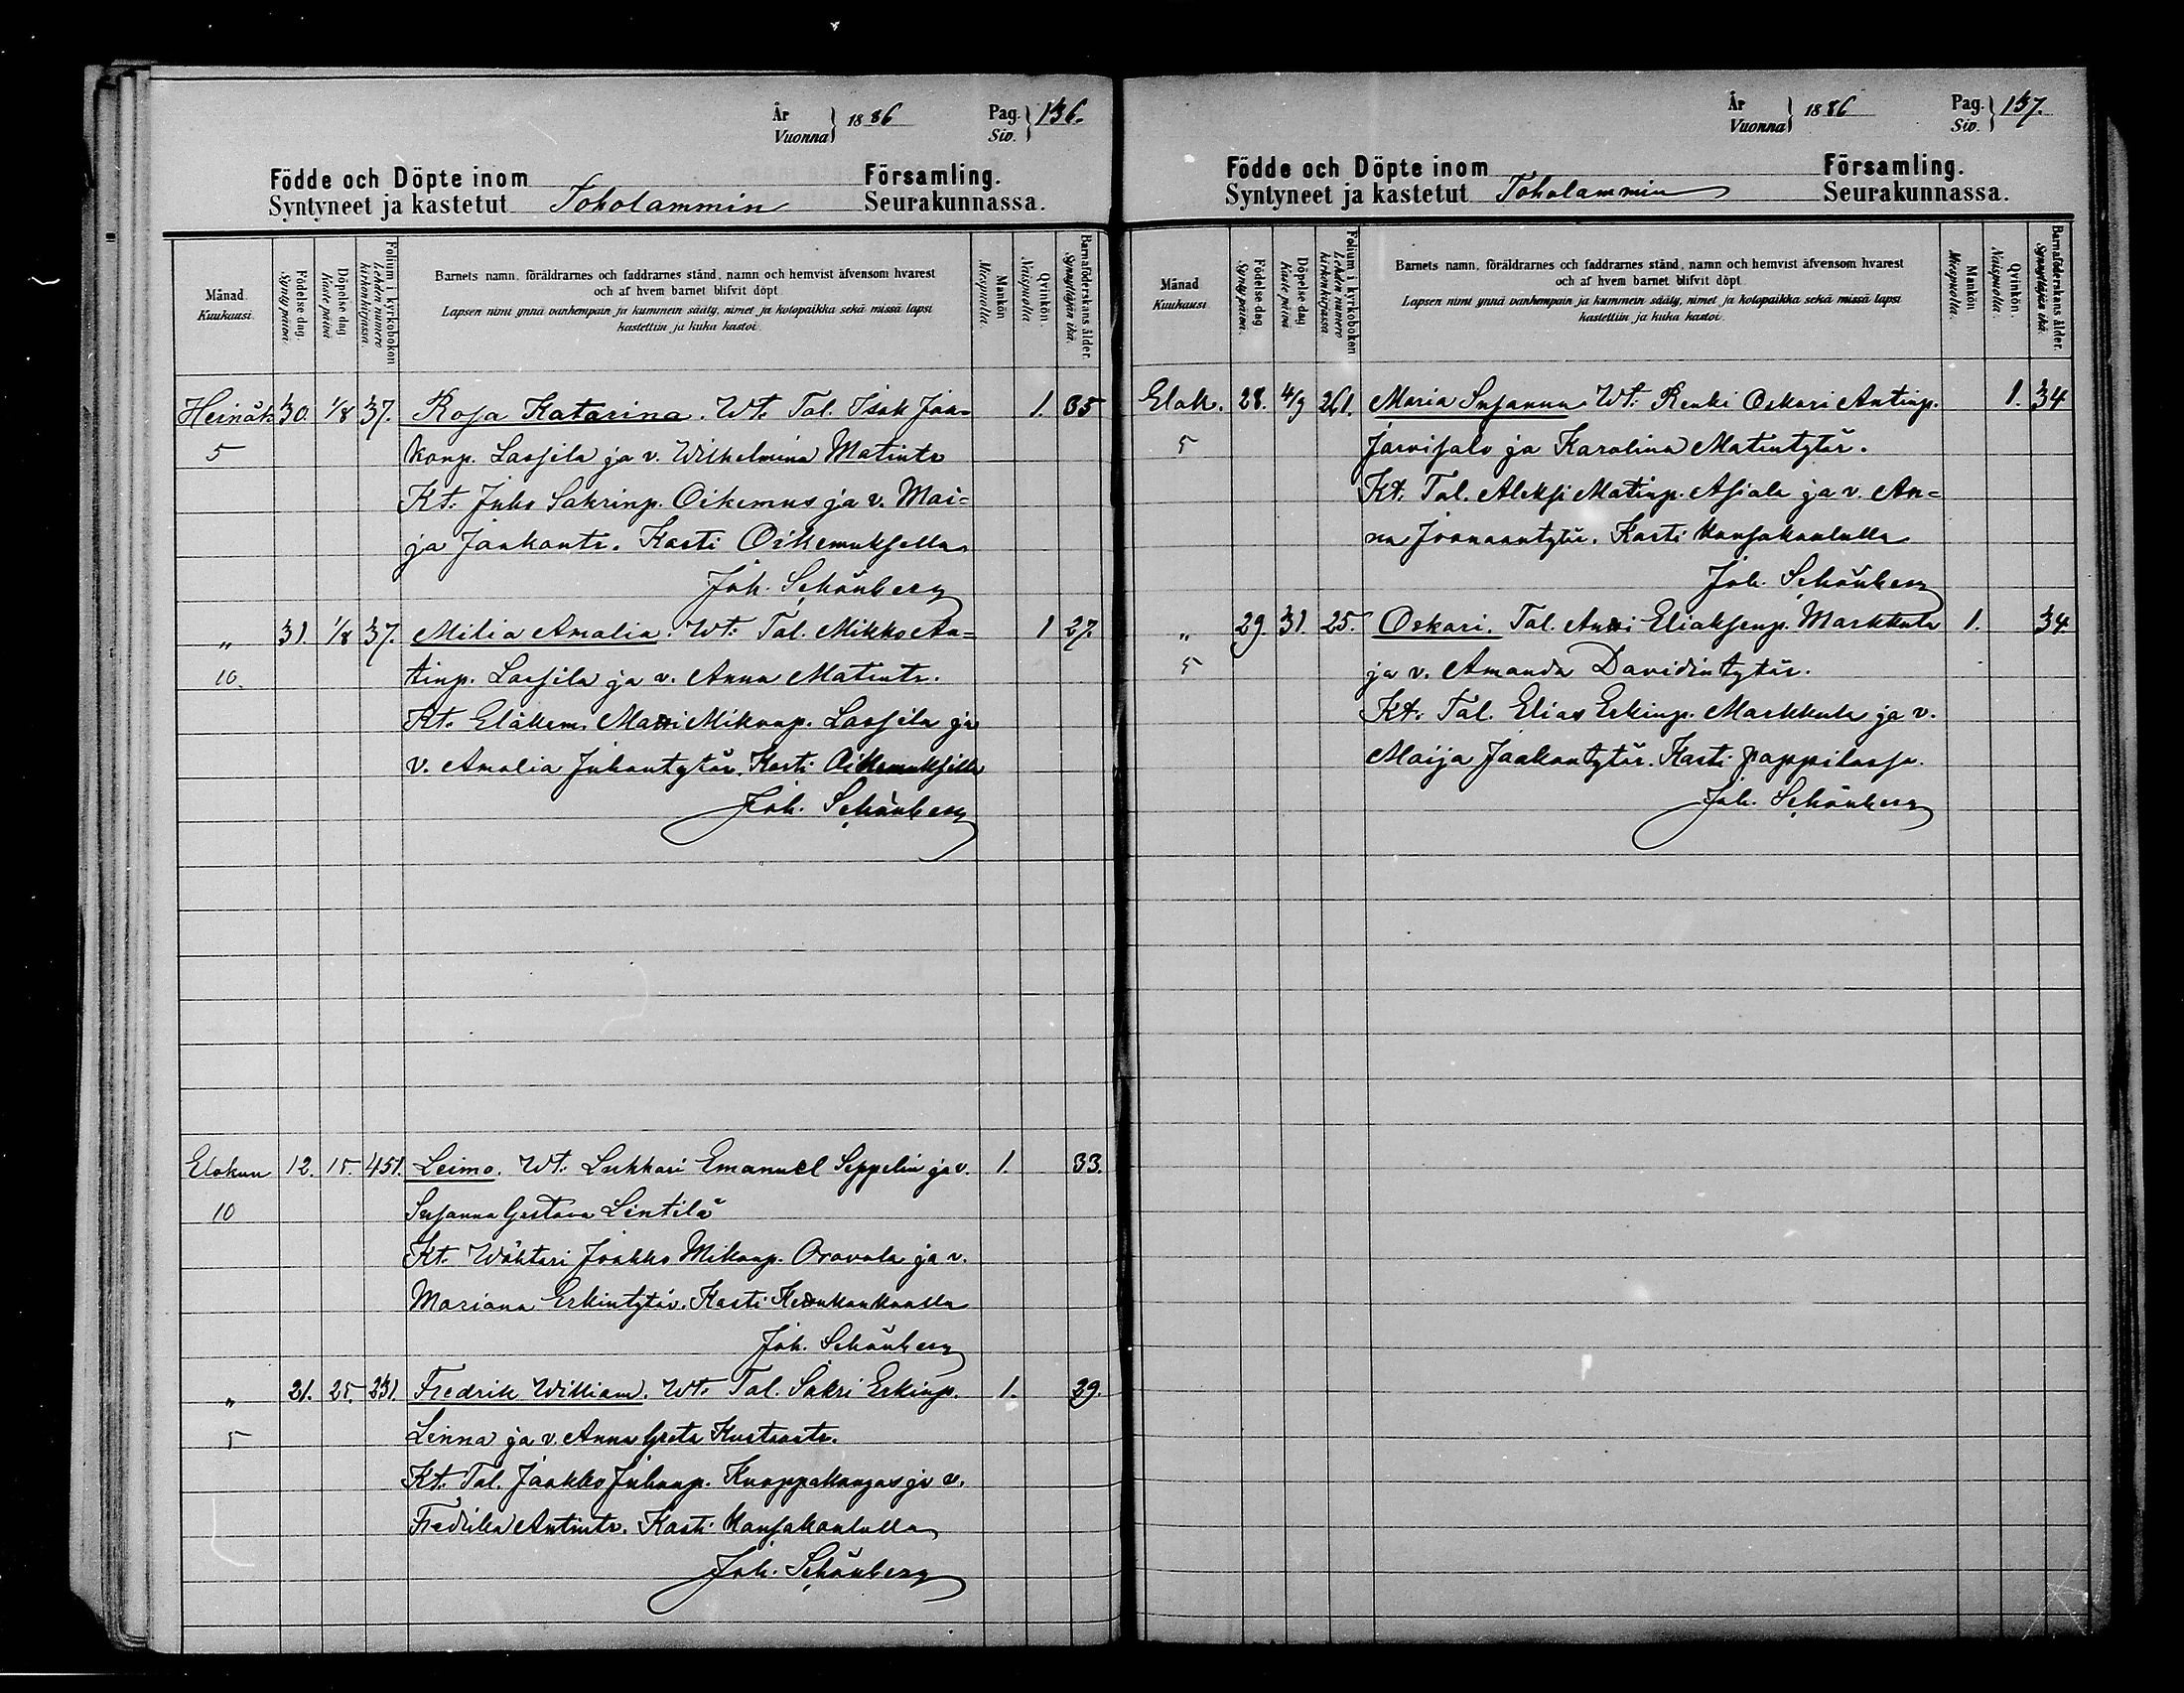 År Vuonna } 1886 Pag. Siv. } 136.
Födde och Döpte inom Församling.
Syntyneet ja kastetut Toholammin Seurakunnassa.
Månad. Kuukausi.
Födelse dag. Synty päivä.
Döpelse dag. Kaste päivä
Folium i kyrkoboken Lehden numero kirkonkirjassa.
Barnets namn, föräldrarnes och faddrarnes stånd, namn och hemvist äfvensom hvarest
och af hvem barnet blifvit döpt.
Lapsen nimi ynnä vanhempain ja kummein sääty, nimet ja kotopaikka sekä missä lapsi
kastettiin ja kuka kastoi.
Mankön Miespuolia.
Qvinkön. Naispuolia
Barnaföderskans ålder. Synnyttäjän ikä.
Heinäk. 30. 1/8 37. Rosa Katarina. Wt. Tal. Isak Jaa=
konp. Lassila ja v. Wilhelmina Matintr 1. 35
5
Kt. Juho Sakrinp. Oikemus ja v. Mai=
ja Jaakontr. Kasti Oikemuksella
Joh. Schönberg
„ 31. 1/8 37. Milia Amalia. Wt. Tal. Mikko An= 1 27.
10. tinp. Lassila ja v. Anna Matintr.
Kt. Eläkem. Matti Mikonp. Lassila ja
v. Amalia Juhontytär. Kasti Oikemuksella
Joh. Schönberg
Elokuu 12. 15. 451. Leimo. Wt. Lukkari Emanuel Seppelin ja v. 1. 33.
10 Susanna Gustava Lintilä
Kt. Wöhtari Jaakko Mikonp. Oravala ja v.
Mariana Erkintytär. Kasti
Joh. Schönberg
„ 21. 25. 231. Fredrik William. Wt. Tal. Sakri Erkinp. 1. 29.
5 Linna ja v. Anna Greta Kustaantr.
Kt. Tal. Jaakko Juhonp. Knoppakangas ja v.
Fredrika Antintr. Kasti kansakoululla
Joh. Schönberg
År Vuonna } 1886 Pag. Siv. } 137.
Födde och Döpte inom Församling.
Syntyneet ja kastetut Toholammin Seurakunnassa.
Månad Kuukausi.
Födelse dag Synty päivä.
Döpelse dag Kaste päivä.
Folium i kyrkoboken Lehden numero kirkonkirjassa
Barnets namn, föräldrarnes och faddrarnes stånd, namn och hemvist äfvensom hvarest
och af hvem barnet blifvit döpt.
Lapsen nimi ynnä vanhempain ja kummein sääty, nimet ja kotopaikka sekä missä lapsi
kastettiin ja kuka kastoi.
Mankön Miespuolia.
Qvinkön. Naispuolia.
Barnaföderskans ålder. Synnyttäjän ikä.
Elok. 28. 4/9 261. Maria Susanna Wt. Renki Oskari Antinp. 1. 34
5 Järvisalo ja Karolina Matintytär.
Kt. Tal. Aleksi Matinp. Asiala ja v. An=
na Joonaantytär. Kasti kansakoululla
Joh. Schönberg
„ 29. 31. 25. Oskari. Tal. Antti Eliaksenp. Markkula 1. 34.
5 ja v. Amanda Davidintytär.
Kt. Tal. Elias Erkinp. Markkula ja v.
Maija Jaakontytär. Kasti pappilassa.
Joh. Schönberg